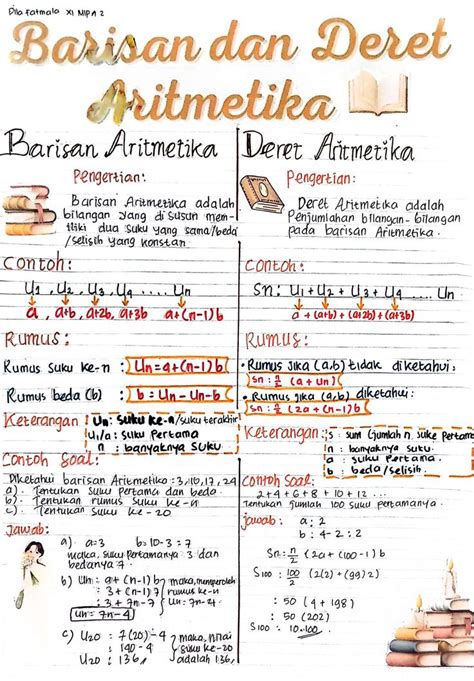 Dila Fatmala XI MIPA 2
Barisan dan Deret
Aritmetika
Barisan Aritmetika
Pengertian:
Barisan Aritmetika adalah
bilangan yang di susun mem-
iliki dua suku yang sama/beda
/selisih yang konstan.
Contoh:
U1, U2, U3, U4 ..... Un
a, a+b, a+2b, a+3b a+(n-1)b
Rumus:
Rumus suku ke-n : Un=a+(n-1)b
Rumus beda (b) : b = Un - Un-b
Keterangan : Un: suku ke-n/suku terakhir
U1/a: suku pertama
n : banyaknya suku
Contoh Soal:
Diketahui barisan Aritmetika: 3,10,17,24
a). Tentukan suku pertama dan beda.
b). Tentukan rumus suku ke-n
c). Tentukan suku ke-20
Jawab:
a) a=3 b=10-3=7
maka, suku pertamanya 3 dan
bedanya 7.
b) Un = a+(n-1)b maka, memperoleh
: 3+(n-1)7 rumus ke-n
: 3+7n-7 Un: 7n-4.
Un = 7n-4
c) U20 : 7(20)-4 maka, nilai
: 140-4 suku ke-20
U20 : 136 adalah 136
Deret Aritmetika
Pengertian:
Deret Aritmetika adalah
Penjumlahan bilangan-bilangan
pada barisan Aritmetika.
Contoh:
Sn: U1+U2+U3+U4 .... Un
a + (a+b) + (a+2b) + (a+3b)
Rumus:
• Rumus jika (a,b) tidak diketahui:
Sn: n/2 (a+Un)
• Rumus jika (a,b) diketahui:
Sn: n/2 (2a+(n-1)b
Keterangan: s : sum (jumlah n suku pertama
n : banyaknya suku
a : suku pertama.
b : beda/selisih.
Contoh Soal:
2+4+6+8+10+12 ...
Tentukan jumlah 100 suku pertamanya.
jawab: a : 2
b : 4-2 : 2
Sn: n/2 (2a+(100-1)b
S100 : 100/2 (2(2)+(99)2)
: 50 (4+198)
: 50 (202)
S100 : 10.100.